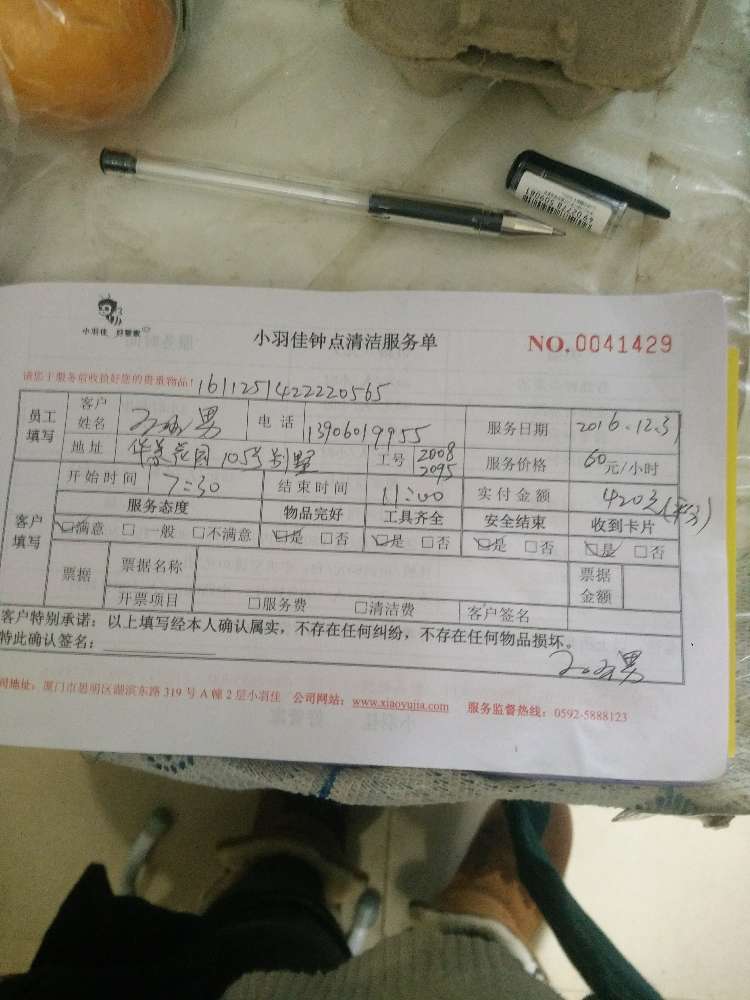 小羽佳 好管家
小羽佳钟点清洁服务单
NO.0041429
请您于服务前收拾好您的贵重物品! 1611251422220565
员工填写 客户姓名 男 电话 13906019955 服务日期 2016.12.31
地址 华景花园105号别墅 工号 2008 2095 服务价格 60元/小时
客户填写 开始时间 7:30 结束时间 11:00 实付金额 420元
服务态度 物品完好 工具齐全 安全结束 收到卡片
☑满意 □一般 □不满意 ☑是 □否 ☑是 □否 ☑是 □否 ☑是 □否
票据 票据名称 票据金额
开票项目 □服务费 □清洁费 客户签名
客户特别承诺：以上填写经本人确认属实，不存在任何纠纷，不存在任何物品损坏。
特此确认签名：
男
司地址：厦门市思明区湖滨东路 319 号 A 幢 2 层小羽佳 公司网站：www.xiaoyujia.com 服务监督热线：0592-5888123